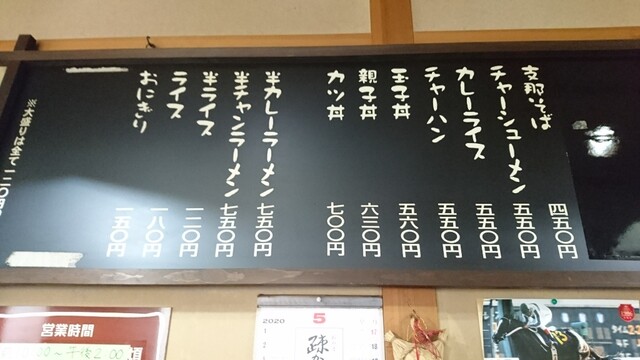 支那そば 四五〇円
チャーシューメン 五五〇円
カレーライス 五五〇円
チャーハン 五五〇円
玉子丼 五六〇円
親子丼 六三〇円
カツ丼 七〇〇円
半カレーラーメン 七五〇円
半チャンラーメン 七五〇円
半ライス 一二〇円
ライス 一八〇円
おにぎり 一五〇円
※大盛りは全て一二〇円
営業時間
〜午後2:00
2020 5
疎